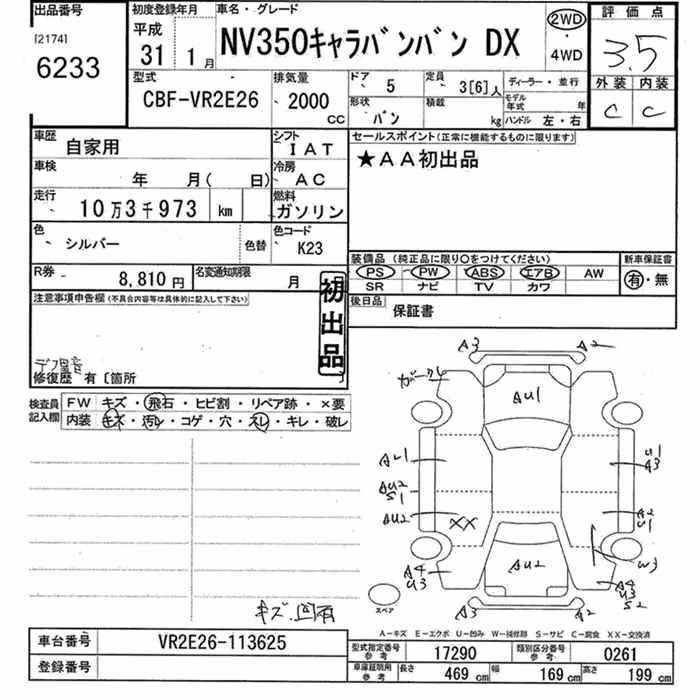 出品番号
[2174]
6233
初度登録年月
平成
31 1月
車名・グレード
NV350キャラバンバン DX
2WD
・
4WD
評価点
3.5
外装 内装
C C
型式
CBF-VR2E26
排気量
2000
CC
ドア 5
定員 3[6]人
形状 バン
積載 kg
ディーラー・並行
モデル年式 年
ハンドル 左・右
車歴 自家用
シフト IAT
車検 年 月( 日)
冷房 AC
走行 10万3千973 km
燃料 ガソリン
色 シルバー 色替
色コード K23
R券 8,810円
名変通知期限 月
セールスポイント(正常に機能するものに限ります)
★AA初出品
装備品(純正品に限り○をつけてください)
PS PW ABS エアB AW
SR ナビ TV カワ
新車保証書
有・無
後日品
保証書
注意事項申告欄(不具合内容等は具体的に記入して下さい)
初出品
修復歴 有〔箇所 〕
検査員記入欄
FW キズ・飛石・ヒビ割・リペア跡・×要
内装 キズ・汚レ・コゲ・穴・スレ・キレ・破レ
A3 A2
AU1
AU1
U1
A3
AU2
S1
AU2
XX
A2
U1
W3
AU2
A4
U3
A4
U3
S2
A3 A2
スペア
A-キズ E-エクボ U-凹み W-補修跡 S-サビ C-腐食 XX-交換済
車台番号 VR2E26-113625
登録番号
型式指定番号 参考 17290
類別区分番号 参考 0261
車庫証明用 参考 長さ 469 cm 幅 169 cm 高さ 199 cm